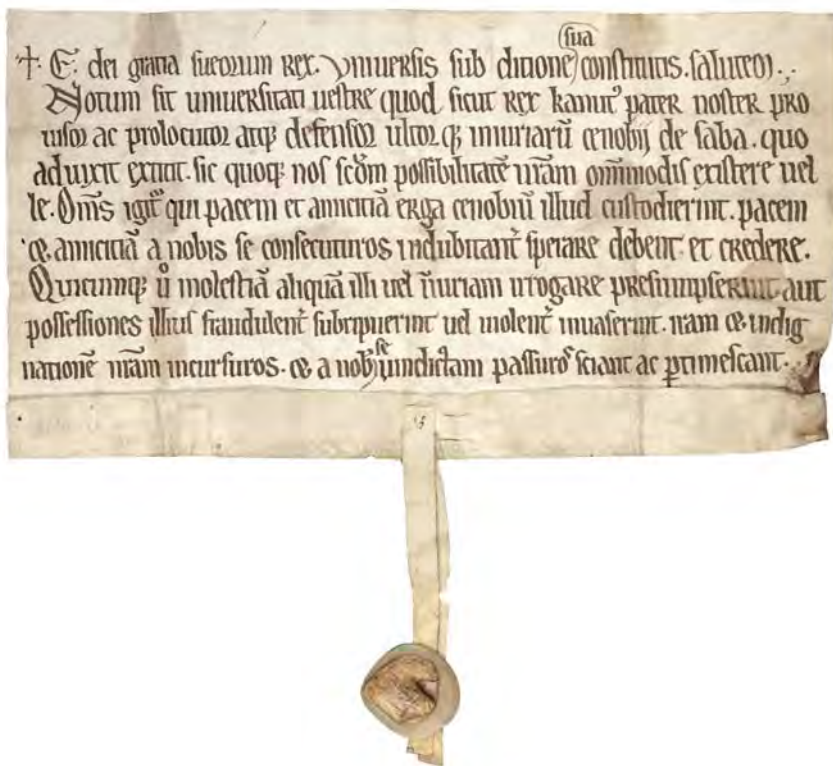 sua
+ E. dei gratia sueorum Rex. Vniuersis sub ditione constitutis. salutem.
Notum sit uniuersitati uestre quod sicut Rex kanutꝰ pater noster pro
uisor ac prolocutor atqꝫ defensor ultorqꝫ iniuriarū cenobij de saba. quo
aduixit extitit. sic quoqꝫ nos scd̄m possibilitatē nr̄am om̄imodis existere uel
le. Om̄s igit᷑ qui pacem et amicitiā erga cenobiū illud custodierint. pacem
& amicitiā a nobis se consecuturos indubitant᷑ sperare debent. et credere.
Quicumqꝫ ů molestiā aliquā illi uel iniuriam irrogare presumpserint. aut
possessiones illius fraudulent᷑ subripuerint uel uiolent᷑ inuaserint. iram & indig
nationē nr̄am incursuros. & a nob̵ se uindictam passuros sciant ac ꝑtimescant.